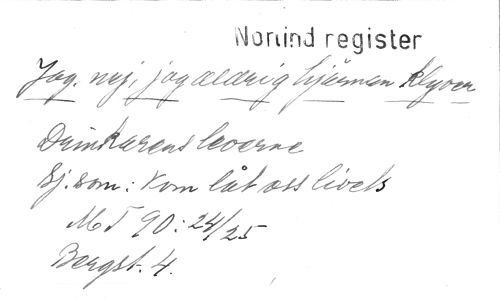 Norlind register
Jag, nej, jag aldrig hjärnan klyver
Drinkarens leverne
Sj. som: Kom låt oss livets
MT 90: 24/25
Bergst. 4.